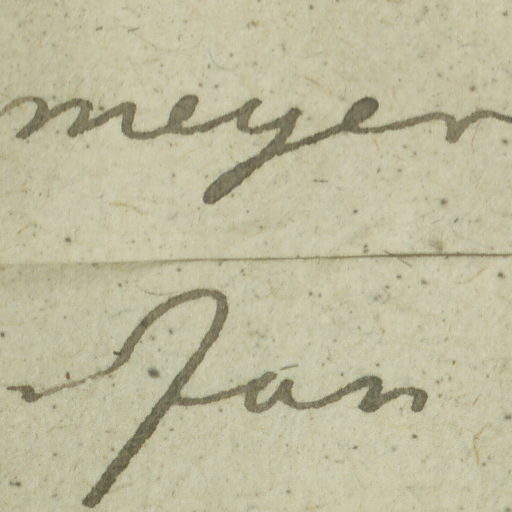 meyer
Jan